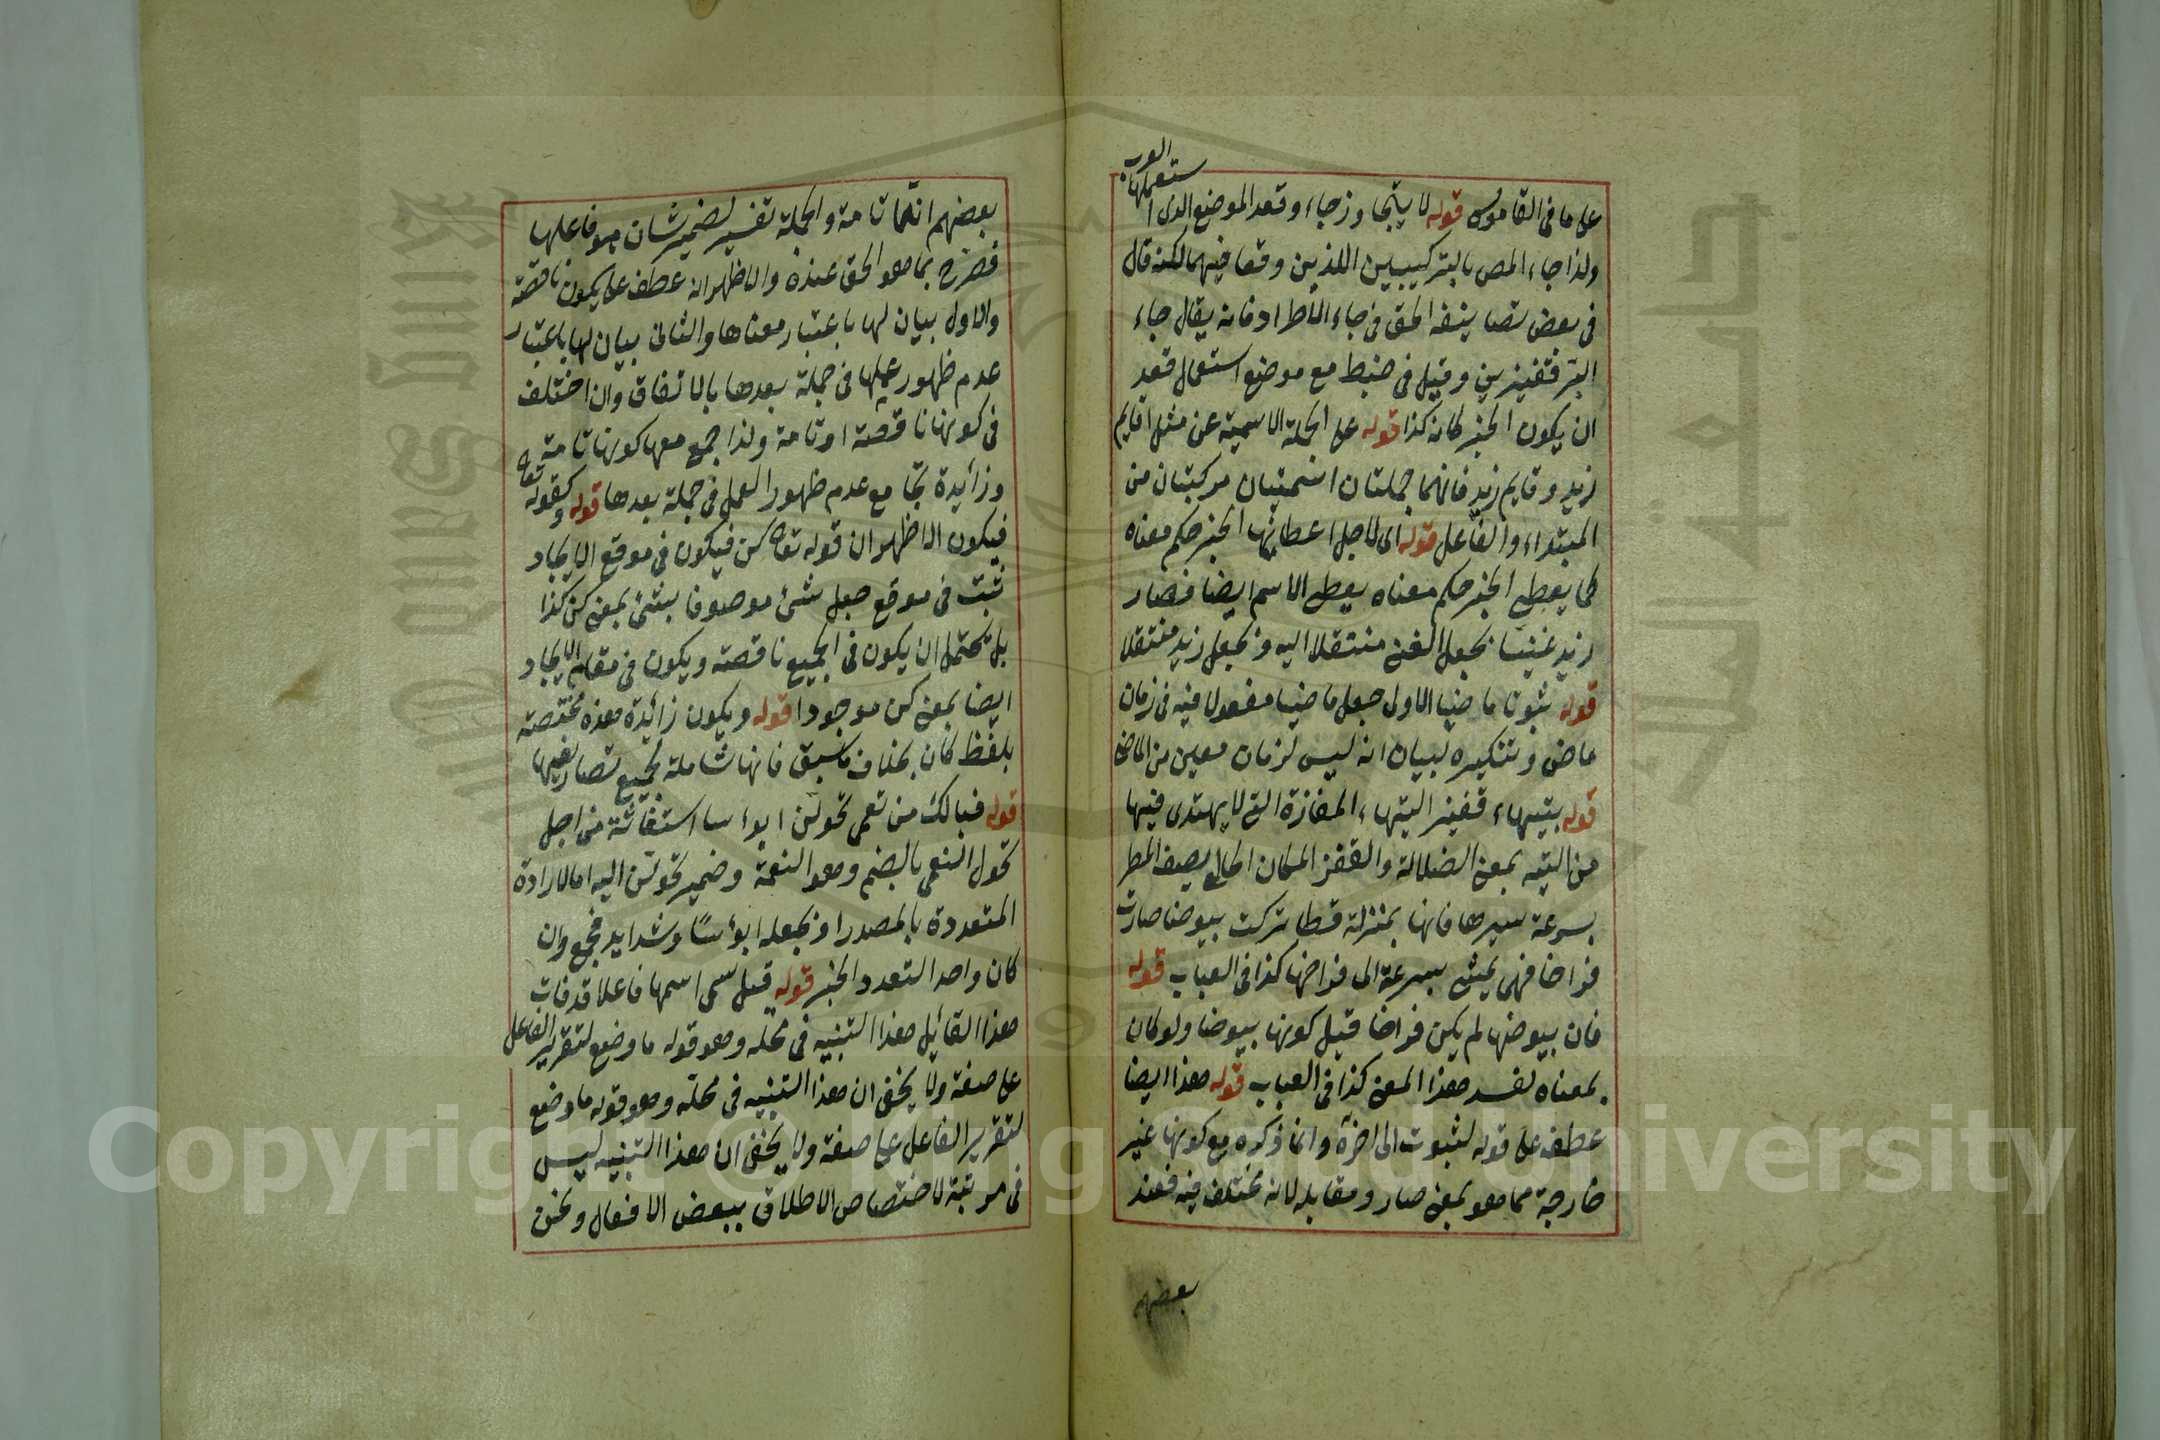 العرب
على ما في القاموس قوله لا يتجاوز جاء وقعد الموضع الذى استعملها
ولذا جاء المص بالتركيبين اللذين وقعا فيهما لكنه قال
في بعض تصانيفه الحق في جاء الاطراد فانه يقال جاء
البر قفيزين وقيل في ضبط مع موضع استعمال قعد
ان يكون الخبر كانه كذا قوله على الجملة الاسمية عن مثل اقايم
زيد وقايم زيد فانهما جملتان اسميتان مركبتان من
المبتداء والفاعل قوله اى لاجل اعطائها الخبر حكم معناه
كما يعطى الخبر حكم معناه يعطى الاسم ايضا فصار
زيد غنيا بجعل الغنى منتقلا اليه وبجعل زيد منتقلا
قوله ثبوتا ماضيا الاول جعل ماضيا مفعولا فيه في زمان
ماض وتنكيره لبيان انه ليس لزمان معين من الماضى
قوله بتيهاء قفيز التيهاء المفازة التى لا يهتدى فيها
من التيه بمعنى الضلالة والقفز المكان الخالى يصف المطر
بسرعة سيرها فانها بمنزلة قطا تركت بيوضا صارت
فراخا فهى يمشى بسرعة الى فراخها كذا في العباب قوله
فان بيوضها لم يكن فراخا قبل كونها بيوضا ولو كان
بمعناه لفسد هذا المعنى كذا في العباب قوله هذا ايضا
عطف على قوله لثبوت الى اخره وانما ذكره مع كونها غير
خارجة مما هو بمعنى صار ومقابله لانه مختلف فيه فعند
بعضهم
بعضهم انها تامة والجملة تفسير لضمير شان هو فاعلها
فصرح بما هو الحق عنده والاظهر انه عطف على يكون ناقصة
والاول بيان لها باعتبار معناها والثانى بيان لها باعتبار
عدم ظهور عملها في جملة بعدها بالاتفاق وان اختلف
في كونها ناقصة او تامة ولذا جمع معها كونها تامة
وزائدة بجامع عدم ظهور العمل في جملة بعدها قوله وكقوله تعا
فيكون الاظهر ان قوله تعا كن فيكون في موقع الايجاد
ثبت في موقع جعل شئ موصوفا بشئ بمعنى كن كذا
بل تحتمل ان يكون في الجميع ناقصة ويكون في مقام الايجاد
ايضا بمعنى كن موجودا قوله ويكون زائدة هذه مختصة
بلفظ كان بخلاف ما سبق فانها شاملة لجميع تصاريفها
قوله فيا لك من نعمى تحولن ابوا سا استغاثة من اجل
تحول النعمى بالضم وهو النعمة وضمير تحولن اليه اما لارادة
المتعددة بالمصدر او بجعله ابؤسا وشدايد فجمع وان
كان واحدا لتعدد الخبر قوله قيل سمى اسمها فاعلا قد فات
هذا القائل هذا التنبيه في محله وهو قوله ما وضع لتقرير الفاعل
على صفة ولا يخفى ان هذا التنبيه في محله وهو قوله ما وضع
لتقرير الفاعل على صفة ولا يخفى ان هذا التنبيه ليس
في مرتبة لاختصاص الاطلاق ببعض الافعال ونحن
Copyright © King Saud University